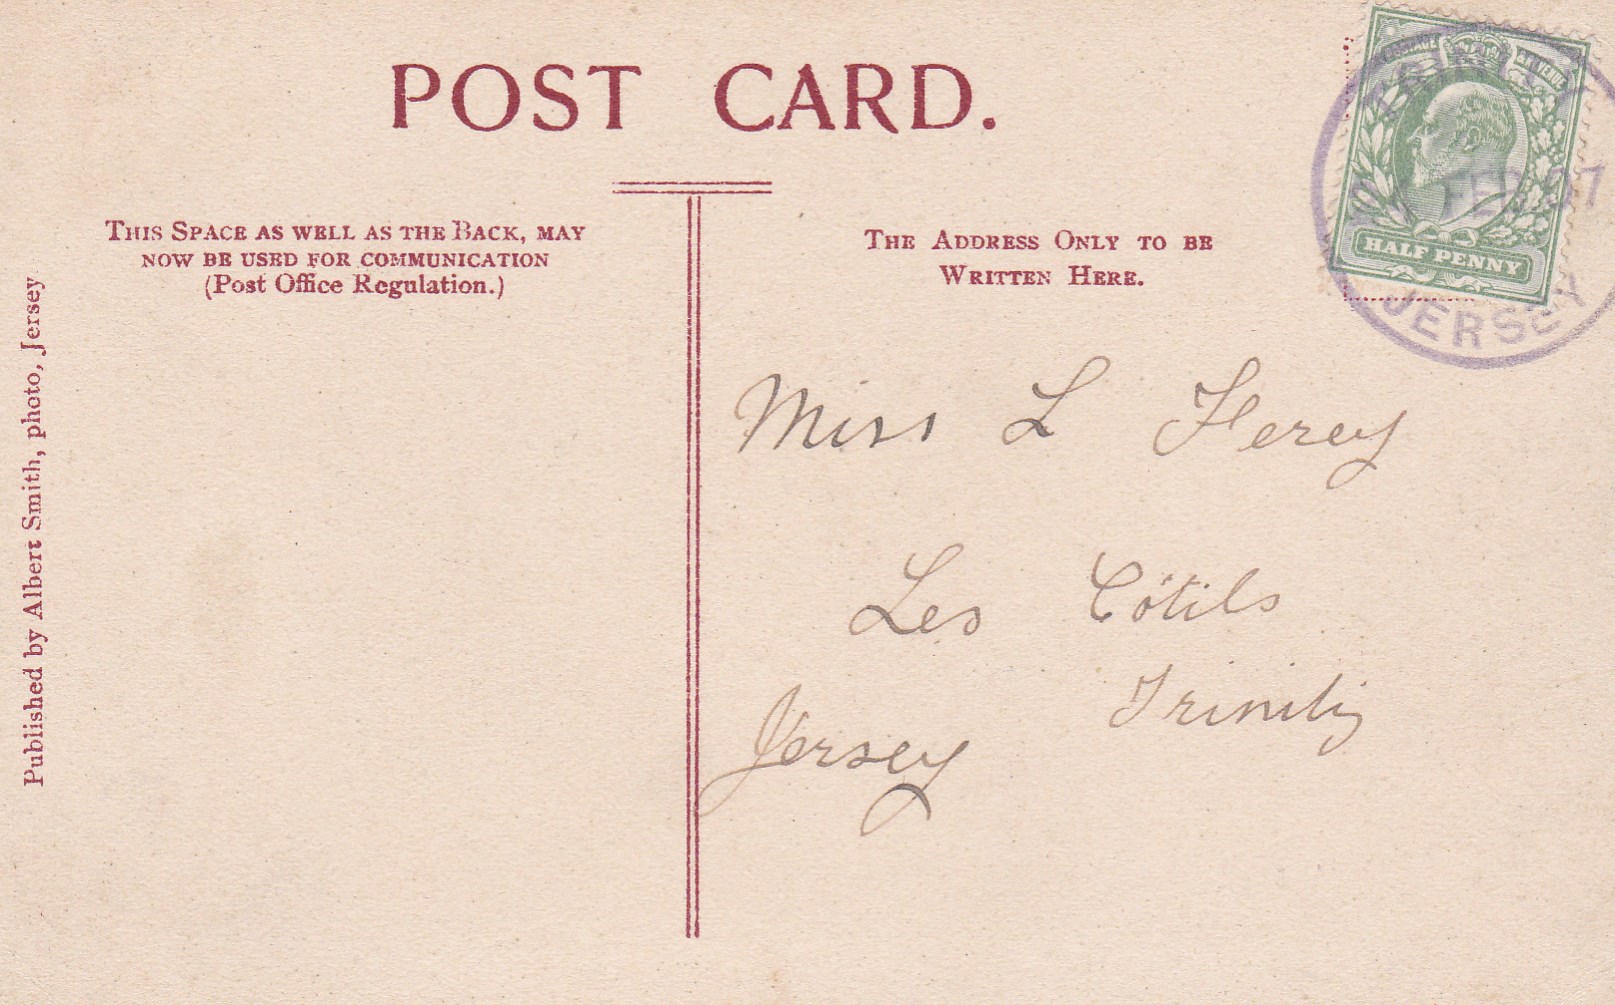 POST CARD.
THIS SPACE AS WELL AS THE BACK, MAY
NOW BE USED FOR COMMUNICATION
(Post Office Regulation.)
THE ADDRESS ONLY TO BE
WRITTEN HERE.
POSTAGE REVENUE
HALF PENNY
TRINITY
FEB 07
JERSEY
Miss L Ferey
Les Côtils
Trinity
Jersey
Published by Albert Smith, photo, Jersey